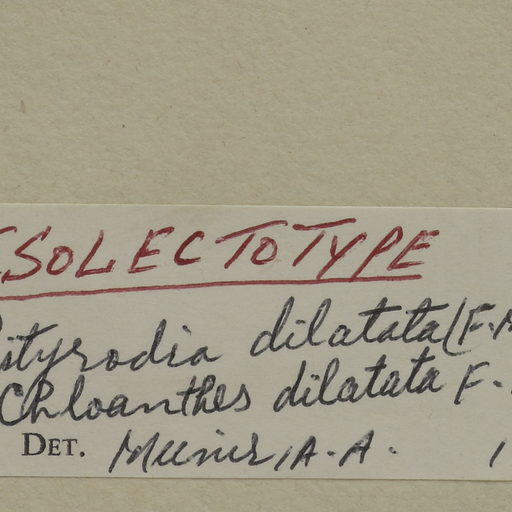 ISOLECTOTYPE
Pityrodia dilatata (F.M
Chloanthes dilatata F.
DET. Munir, A.A. 1